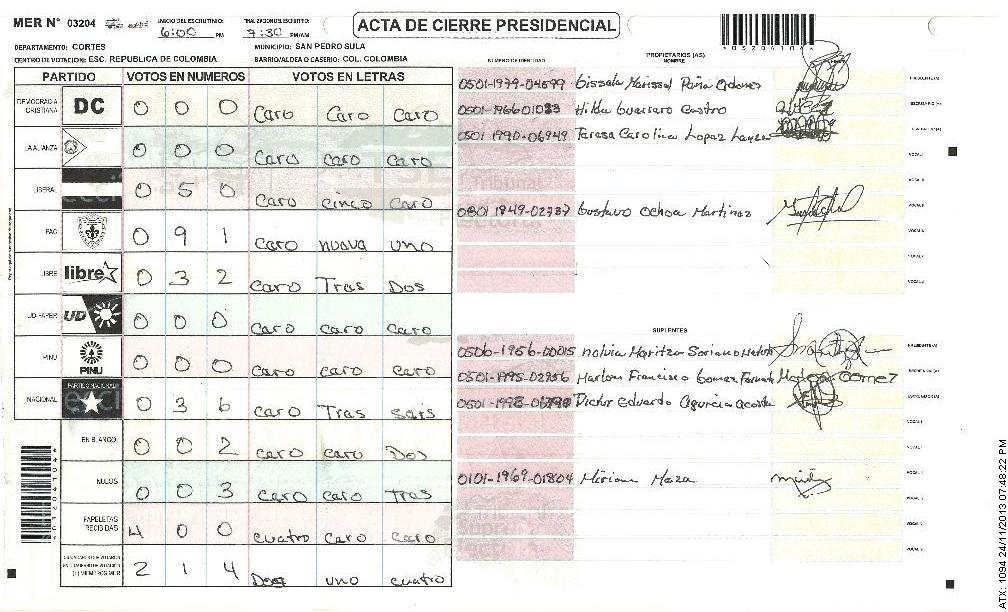 MER N° 03204
INICIO DEL ESCRUTINIO:
6:00 PM
FINALIZACION DEL ESCRUTINIO:
7:30 PM/AM
ACTA DE CIERRE PRESIDENCIAL
DEPARTAMENTO: CORTES
MUNICIPIO: SAN PEDRO SULA
CENTRO DE VOTACION: ESC. REPUBLICA DE COLOMBIA
BARRIO/ALDEA O CASERIO: COL. COLOMBIA
PARTIDO VOTOS EN NUMEROS VOTOS EN LETRAS
DEMOCRACIA CRISTIANA DC 0 0 0 Cero Cero Cero
LA ALIANZA 0 0 0 Cero cero cero
LIBERAL 0 5 0 cero cinco cero
PAC 0 9 1 cero nueve uno
LIBRE libre 0 3 2 cero Tres Dos
UD-FAPER UD 0 0 0 cero cero cero
PINU PINU 0 0 0 cero cero cero
NACIONAL PARTIDO NACIONAL 0 3 6 cero Tres seis
EN BLANCO 0 0 2 cero cero Dos
NULOS 0 0 3 cero cero tres
PAPELETAS RECIBIDAS 4 0 0 cuatro cero cero
2 1 4 Dos uno cuatro
NUMERO DE IDENTIDAD
PROPIETARIOS (AS)
NOMBRE
0501-1979-04699 Gissela Marissol Peña Ordonez PRESIDENTE(A)
0501-1966 01083 Hilda Guerrero Castro SECRETARIO (A)
0501 1990-06949 Teresa Carolina Lopez
VOCAL I
VOCAL II
0801 1949-02737 Gustavo Ochoa Martinez
SUPLENTES
0506-1956-00015 Maritza Soriano PRESIDENTE(A)
0501-1995-02756 Marlon Francisco Gomez Gomez SECRETARIO (A)
Victor Eduardo Acosta ESCRUTADOR(A)
VOCAL I
0101-1969-01804 Miriam Meza
03204104
ATX: 1094 24/11/2013 07:48:22 PM